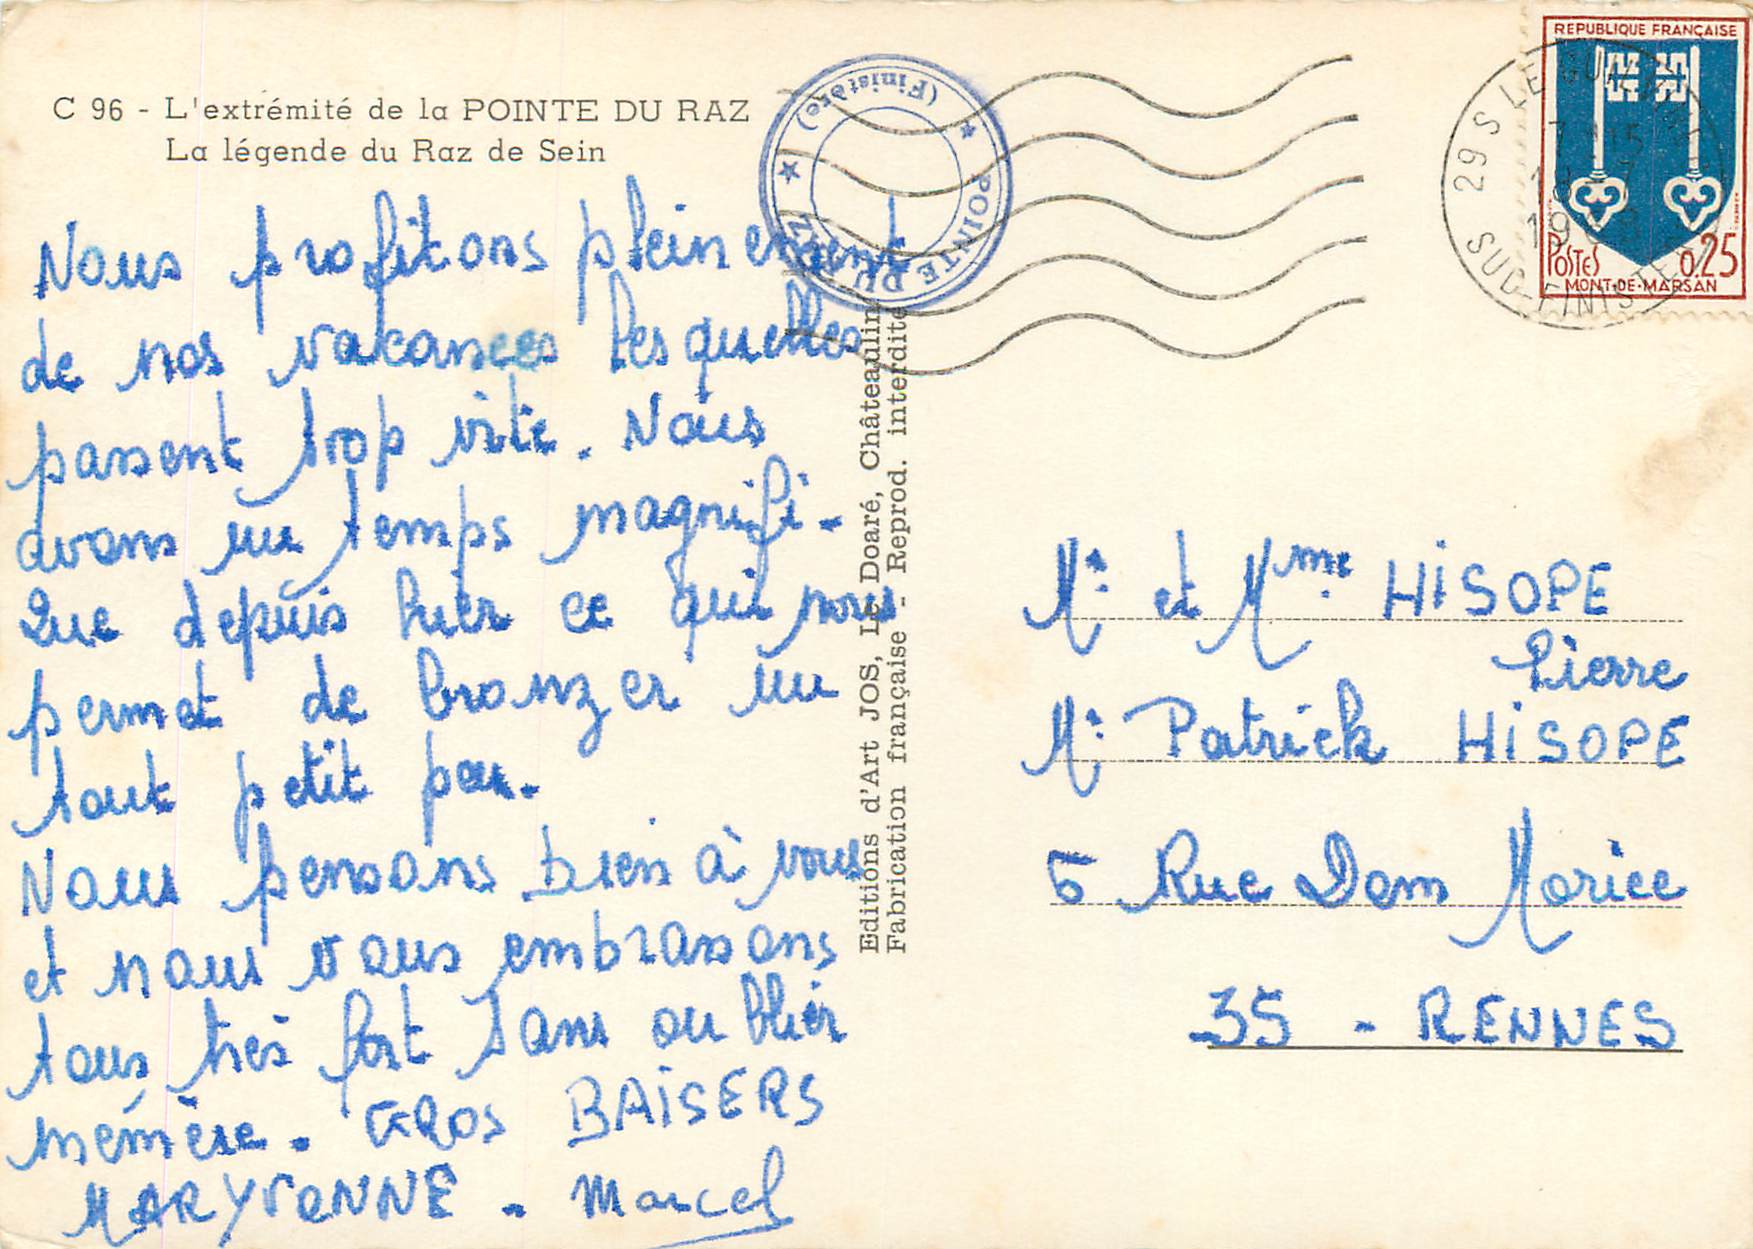 C 96 - L'extrémité de la POINTE DU RAZ
La légende du Raz de Sein
Nous profitons pleinement
de nos vacances lesquelles
passent trop vite. Nous
avons un temps magnifi-
que depuis hier ce qui nous
permet de bronzer un
tout petit peu.
Nous pensons bien à vous
et nous vous embrassons
tous très fort sans oublier
mémère. GROS BAISERS
MARYVONNE. Marcel
Editions d'Art JOS, Le Doaré, Châteaulin
Fabrication française - Reprod. interdite
★ POINTE DU RAZ ★ (Finistère)
REPUBLIQUE FRANÇAISE
POSTES 0,25
MONT-DE-MARSAN
29 S LE
15
19
SUD-FINISTERE
Mr et Mme HISOPE
Pierre
Mr Patrick HISOPE
5 Rue Dom Morice
35 - RENNES